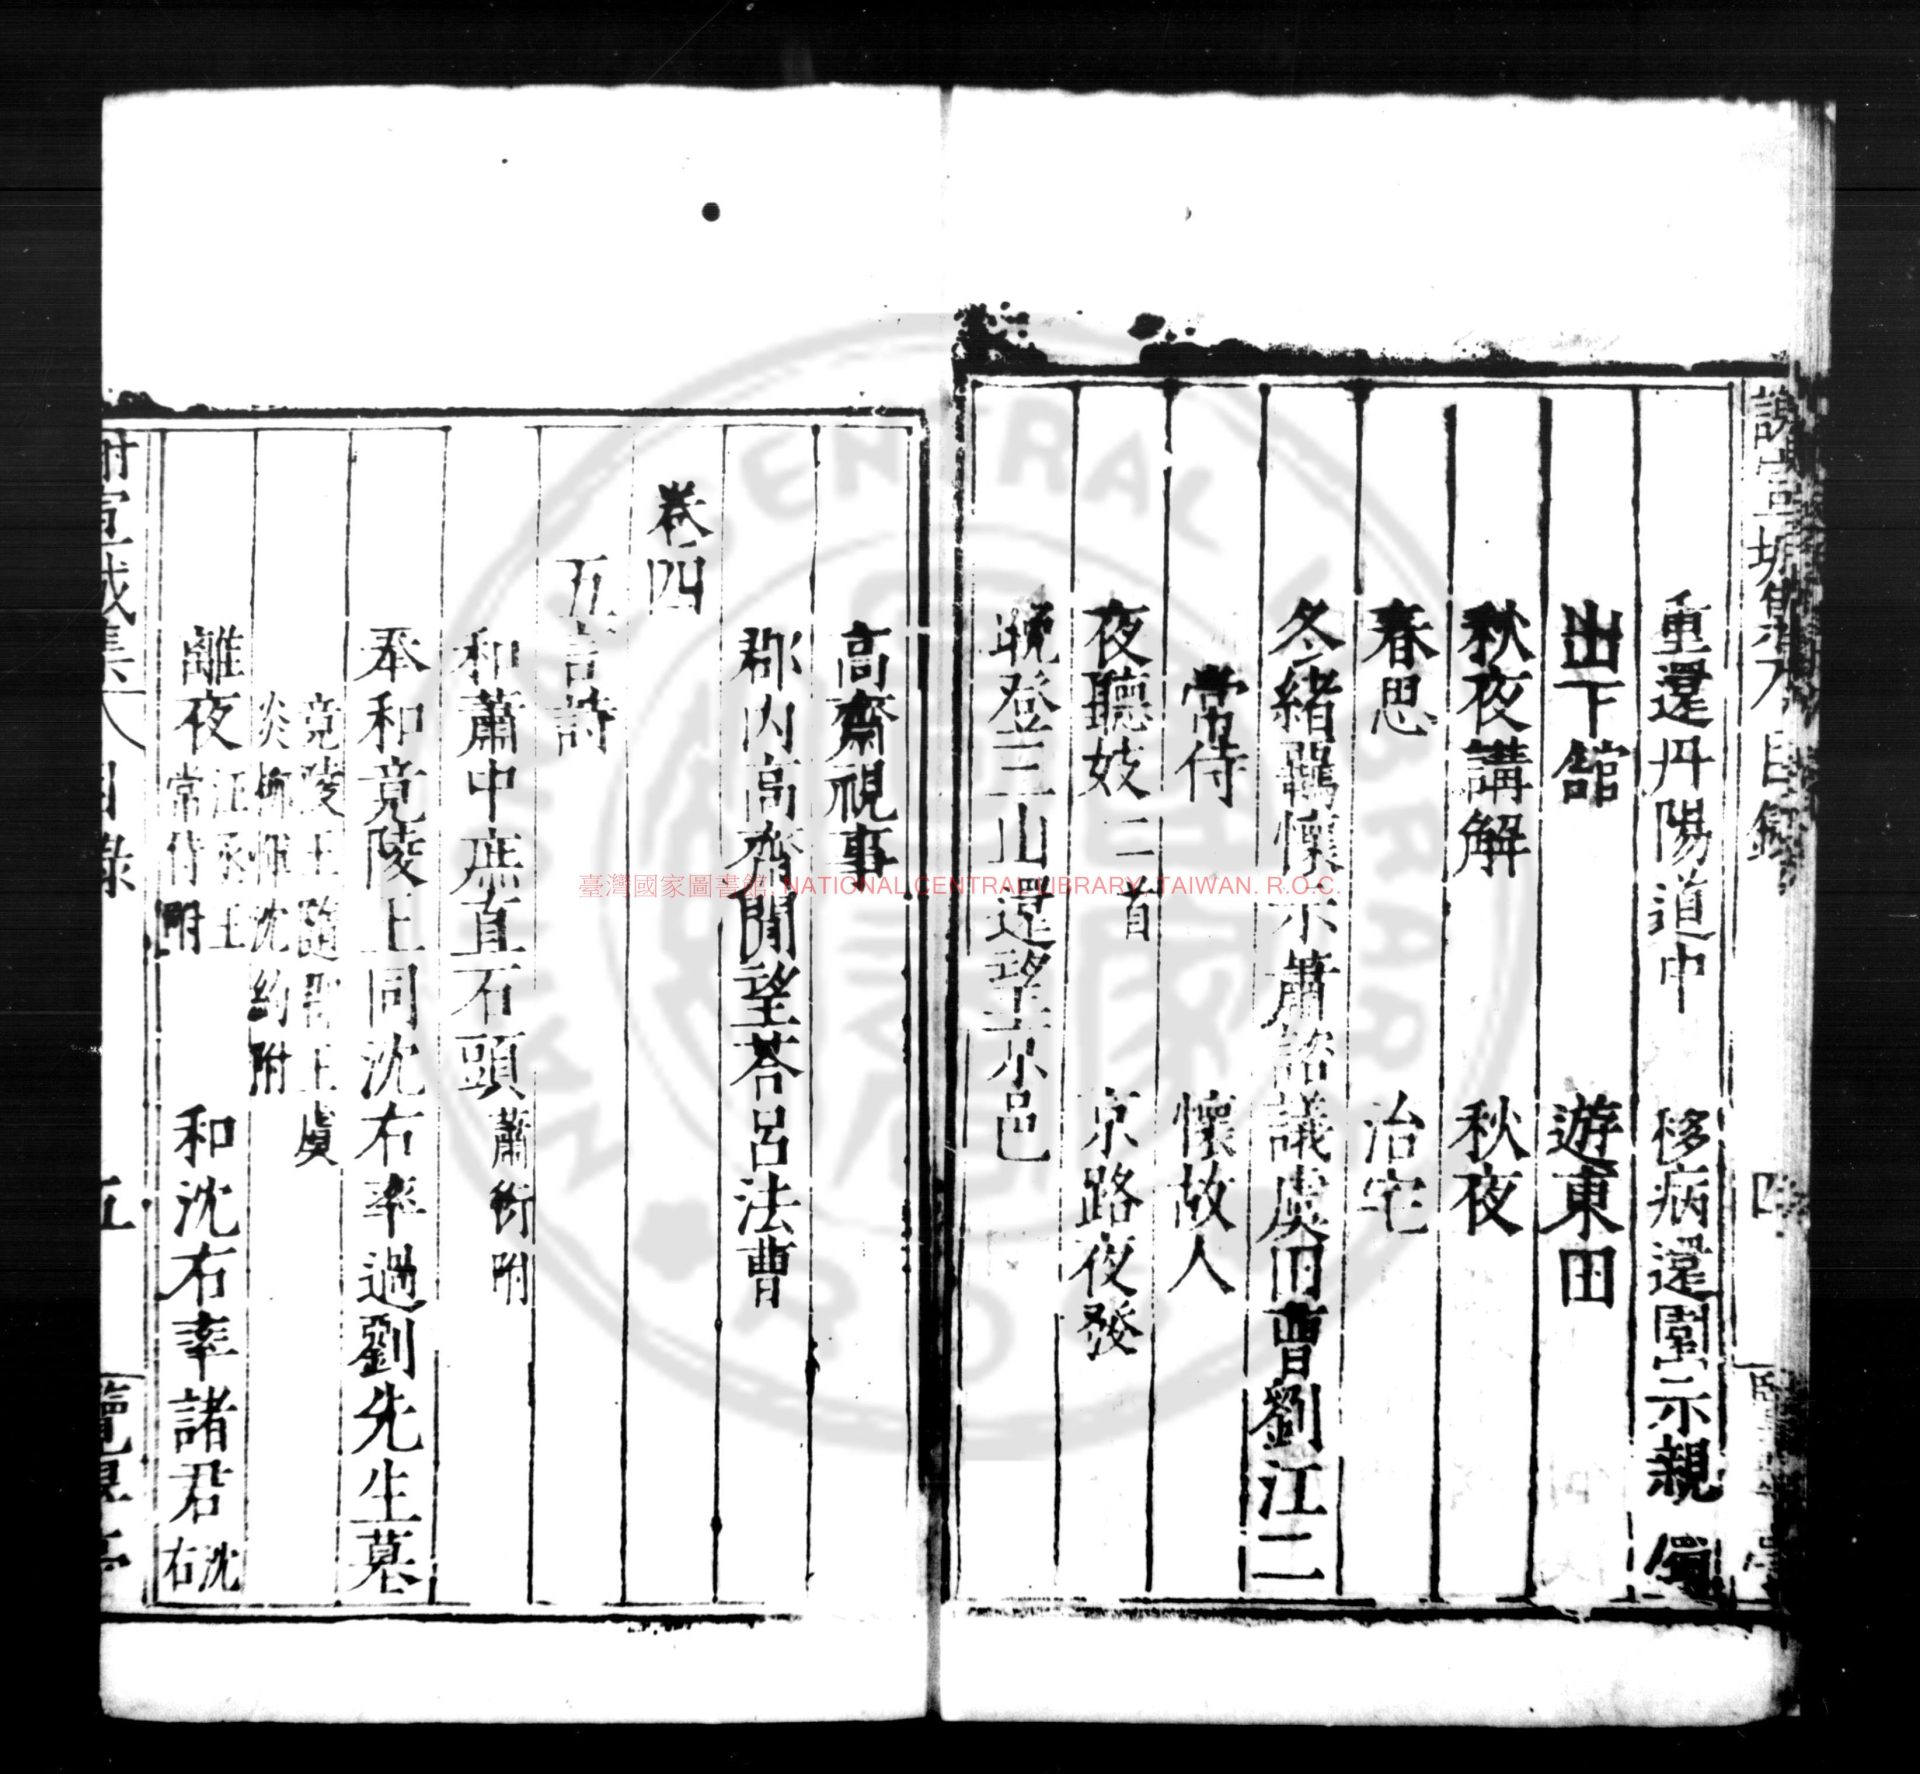 重還丹陽道中　移病還園示親屬
出下館　遊東田
秋夜講解　秋夜
春思　治宅
冬緒羈懷示蕭諮議虞田曹劉江二
常侍　懷故人
夜聽妓二首　京路夜發
晚登三山還望京邑
高齋視事
郡內高齋閒望荅呂法曹
卷四
五言詩
和蕭中庶直石頭蕭衍附
奉和竟陵王同沈右率過劉先生墓
竟陵王隨郡王虞
炎柳惲沈約附
離夜江丞王常侍附　和沈右率諸君沈右
目錄
五
臺灣國家圖書館, NATIONAL CENTRAL LIBRARY, TAIWAN. R.O.C.